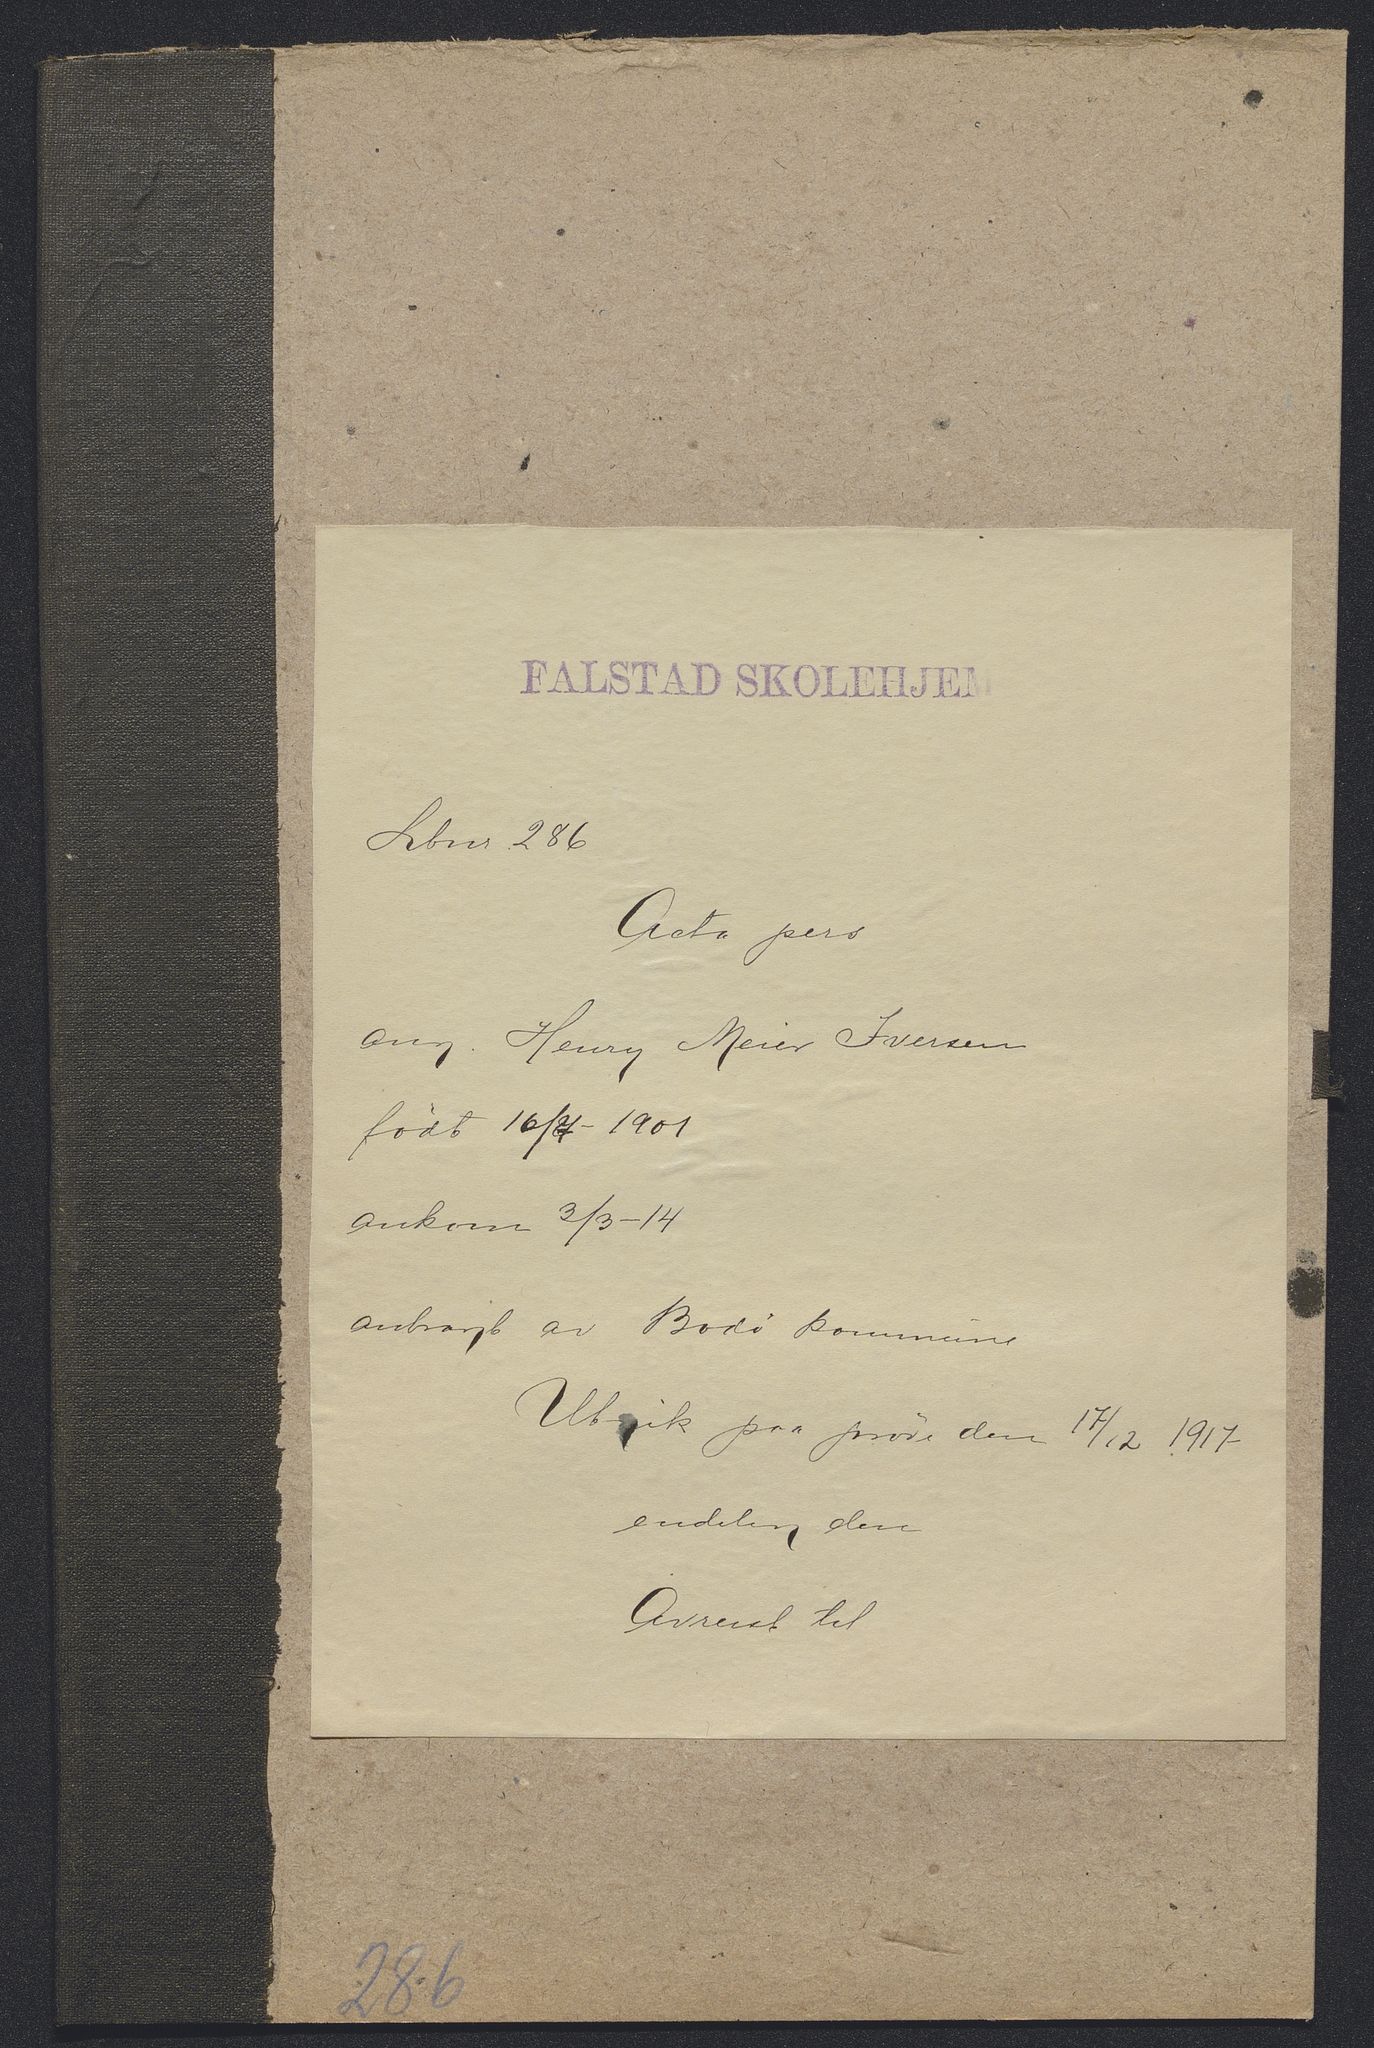 FALSTAD SKOLEHJEM
Lbnr. 286
Acta pers
ang. Henry Meier Iversen
födt 16/ - 1901
ankom 3/3-14
anbragt av Bodö kommune
Utgik paa pröve den 17/12 1917
endelig den
Avreist til
286